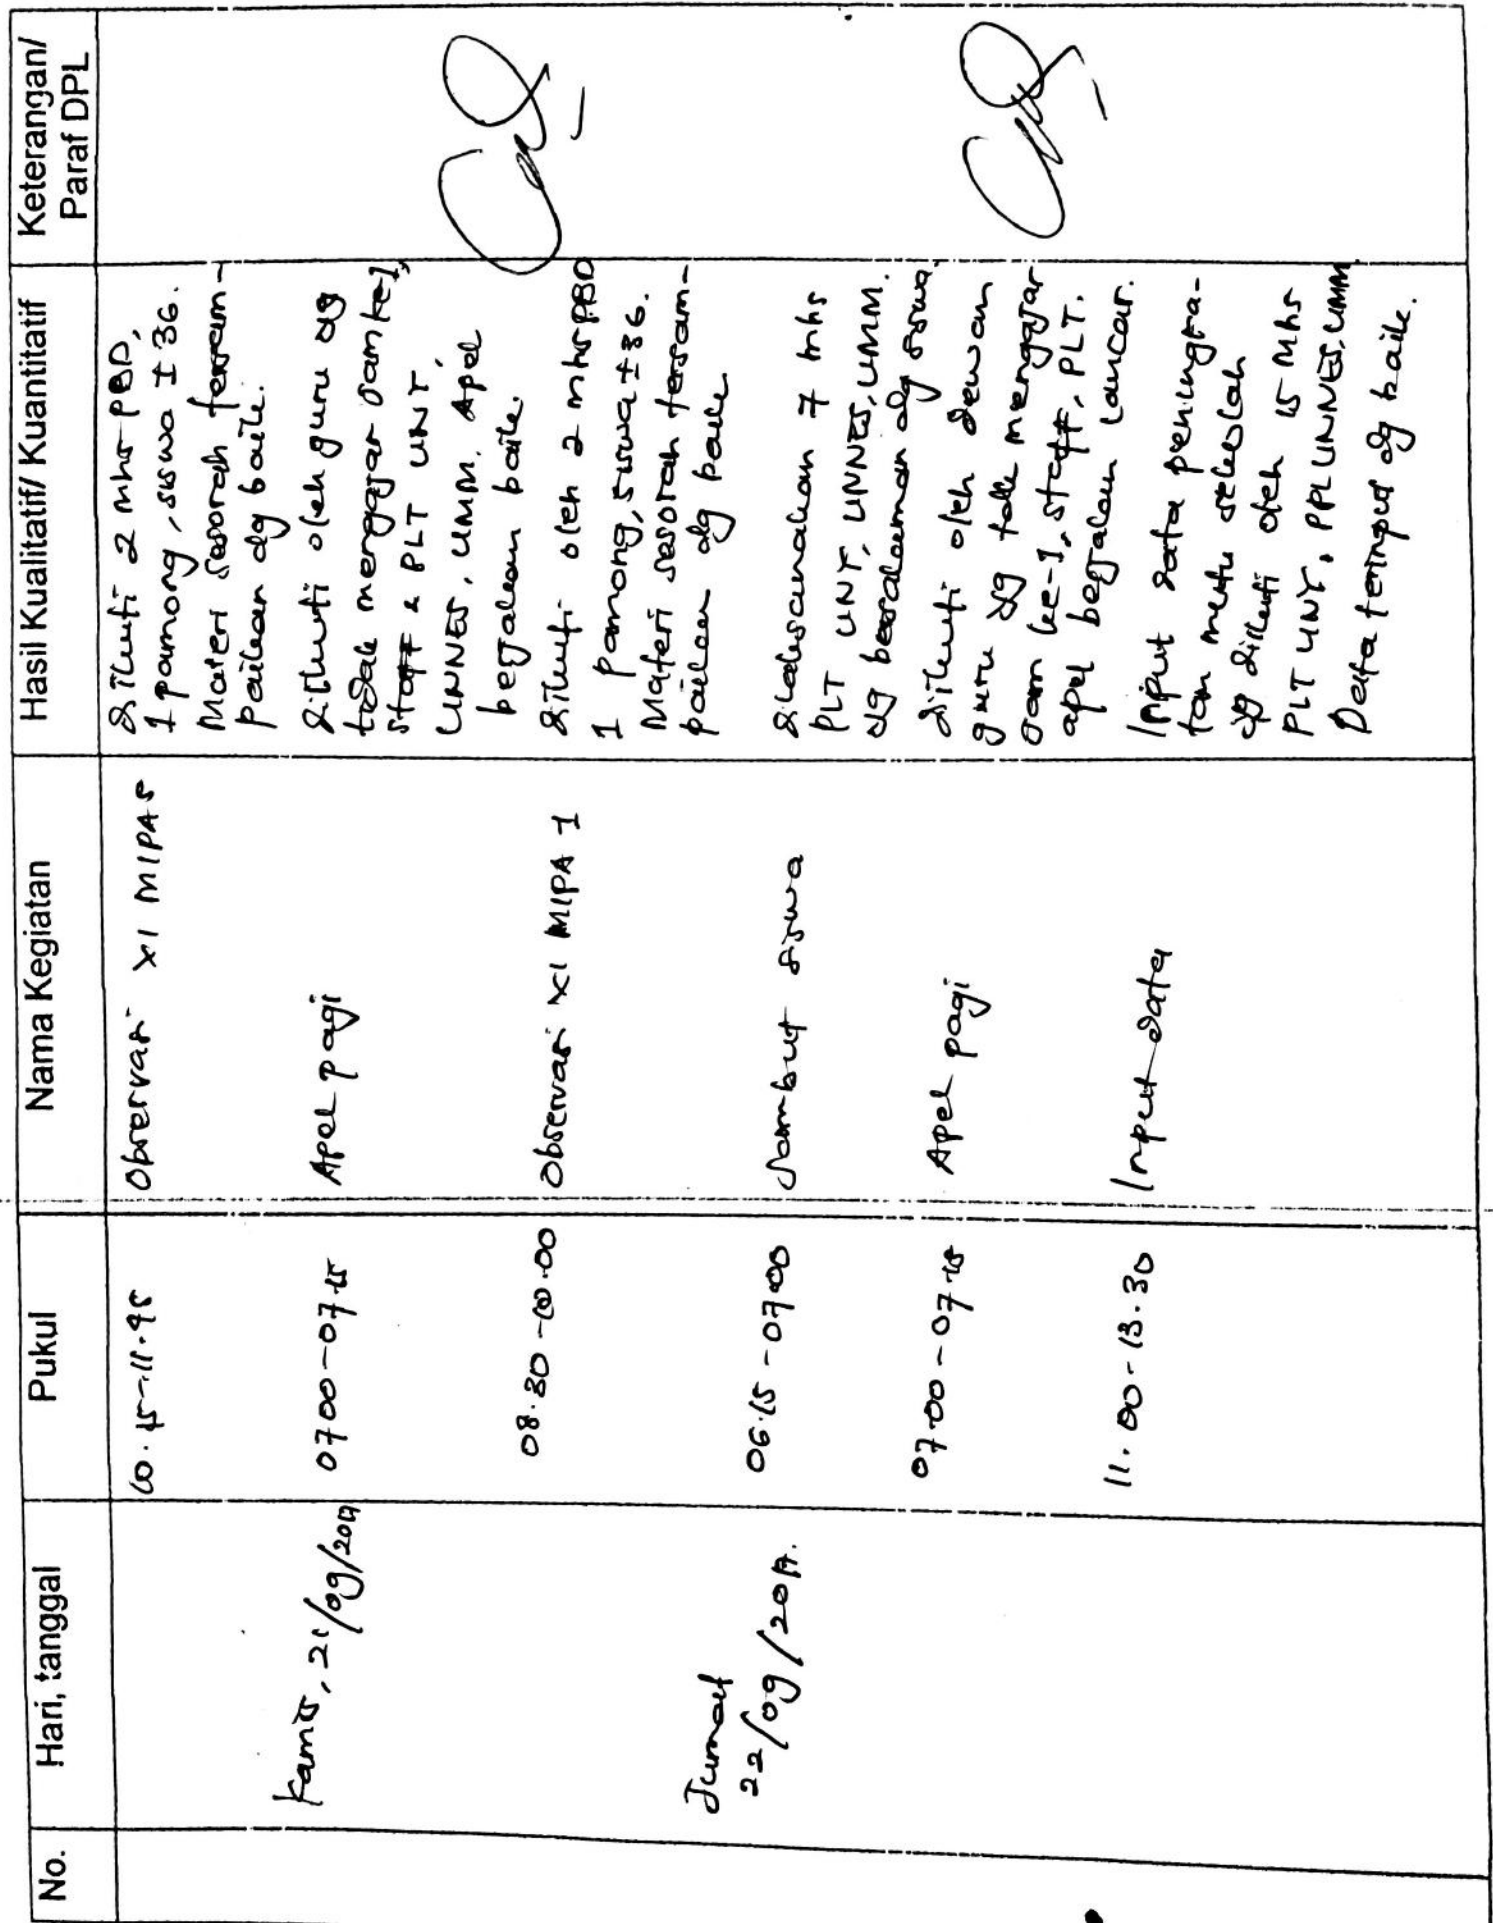 No.
Hari, tanggal
Pukul
Nama Kegiatan
Hasil Kualitatif/ Kuantitatif
Keterangan/
Paraf DPL
10.15-11.45
Observasi XI MIPA 5
Diikuti 2 mhs PBD,
1 pamong, siswa ± 36.
Materi sesorah tersam-
paikan dg baik.
Kamis, 21/09/2017
07.00-07.15
Apel pagi
Diikuti oleh guru yg
tidak mengajar jam ke-1,
staff & PLT UNY,
UNNES, UMM. Apel
berjalan baik.
08.30-10.00
Observasi XI MIPA 1
Diikuti oleh 2 mhs PBD
1 pamong, siswa ± 36.
Materi sesorah tersam-
paikan dg baik
Jumat
22/09/2017.
06.15-07.00
Sambut siswa
Dilaksanakan 7 mhs
PLT UNY, UNNES, UMM.
dg bersalaman dg siswa.
07.00-07.15
Apel pagi
Diikuti oleh dewan
guru yg tdk mengajar
jam ke-1, staff, PLT.
apel berjalan lancar.
11.00-13.30
Input data
Input data peningka-
tan mutu sekolah
yg diikuti oleh 15 Mhs
PLT UNY, PPL UNNES, UMM
Data terinput dg baik.